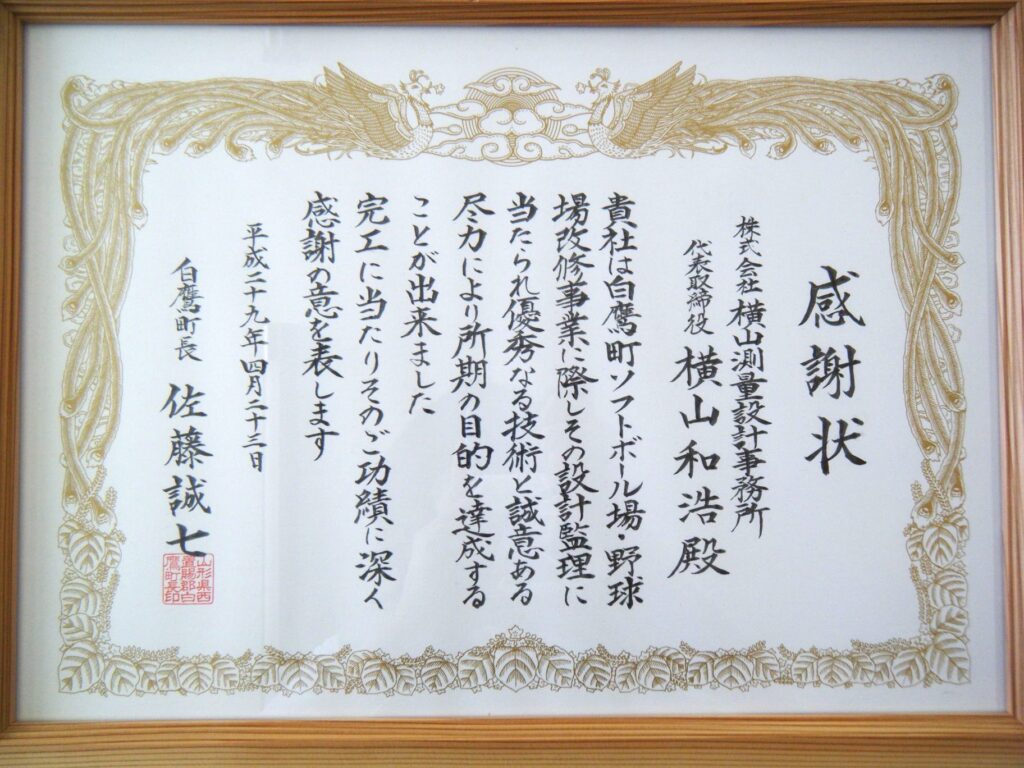 感謝状
株式会社 横山測量設計事務所
代表取締役 横山和浩殿
貴社は白鷹町ソフトボール場・野球
場改修事業に際しその設計監理に
当たられ優秀なる技術と誠意ある
尽力により所期の目的を達成する
ことが出来ました
完工に当たりそのご功績に深く
感謝の意を表します
平成二十九年四月二十三日
白鷹町長 佐藤誠七
山形県西
置賜郡白
鷹町長印